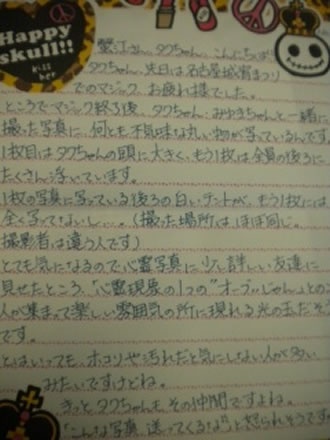 Happy
skull!!
Kiss
her
蟹江さん、タクちゃん、こんにちは!
タクちゃん、先日は名古屋城宵まつり
でのマジック お疲れ様でした。
ところでマジック終了後、タクちゃん・みゆきちゃんと一緒に
撮った写真に、何とも不気味な丸い物が写っているんです。
1枚目はタクちゃんの頭に大きく、もう1枚は全員の後ろに
たくさん浮いています。
1枚の写真に写っている後ろの白いテントが、もう1枚には
全く写ってないし…。(撮った場所はほぼ同じ。
撮影者は違う人です)
とても気になるので心霊写真に少し詳しい友達に
見せたところ、「心霊現象の1つの"オーブ"じゃん」との
人が集まって楽しい雰囲気の所に現れる光の玉だそう
です。
とはいっても、ホコリや汚れだと気にしない人が多い
みたいですけどね。
きっとタクちゃんもその仲間ですよね。
「こんな写真、送ってくるな!」と怒られそうです